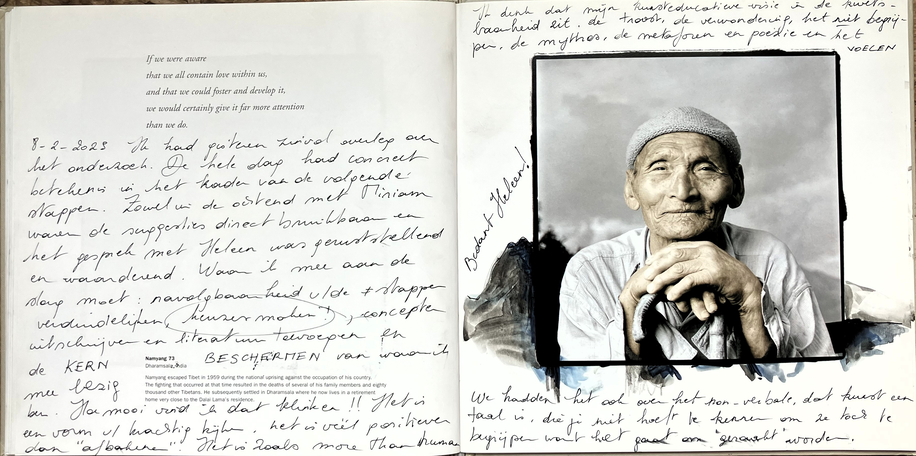 If we were aware
that we all contain love within us,
and that we could foster and develop it,
we would certainly give it far more attention
than we do.
8-2-2023 Ik had gisteren zinvol overleg over
het onderzoek. De hele dag had concreet
betekenis in het kader van de volgende
stappen. Zowel in de ochtend met Miriam
waren de suggesties direct bruikbaar en
het gesprek met Heleen was geruststellend
en waarderend. Waar ik mee aan de
slag moet: navolgbaarheid v/de # stappen
verduidelijken, keuzes maken!, concepten
uitschrijven en literatuur toevoegen En
de KERN BESCHERMEN van waar ik
mee bezig
Namyang 73
Dharamsala, India
Namyang escaped Tibet in 1959 during the national uprising against the occupation of his country.
The fighting that occurred at that time resulted in the deaths of several of his family members and eighty
thousand other Tibetans. He subsequently settled in Dharamsala where he now lives in a retirement
home very close to the Dalai Lama's residence.
ben. Hoe mooi vind ik dat klinken!! Het is
een vorm v/ krachtig kijken, het is veel positiever
dan "afbakenen". Het is zoals more than human
Ik denk dat mijn kunsteducatieve visie in de kwets-
baarheid zit, de troost, de verwondering, het niet begrij-
pen, de mythos, de metaforen en poëzie en het
VOELEN
Bedankt Heleen!
We hadden het ook over het non-verbale, dat kunst een
taal is, die je niet hoeft te kennen om ze toch te
begrijpen want het gaat om "geraakt" worden.